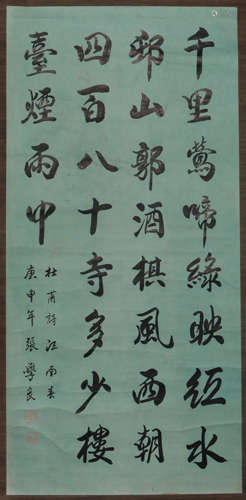 千里鶯啼綠映紅水
邨山郭酒棋風西朝
四百八十寺多少樓
臺煙雨中
杜莆詩江南春
庚申年張學良